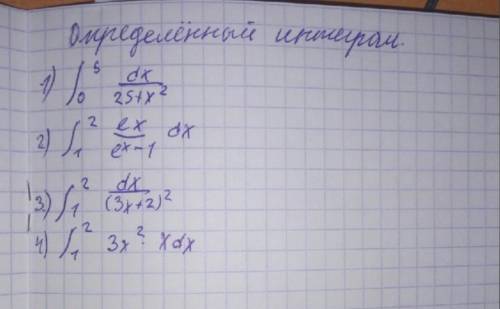 Определённый интеграл.
1) ∫₀⁵ dx/(25+x²)
2) ∫₁² eˣ/(eˣ-1) dx
3.) ∫₁² dx/(3x+2)²
4) ∫₁² 3x² · x dx